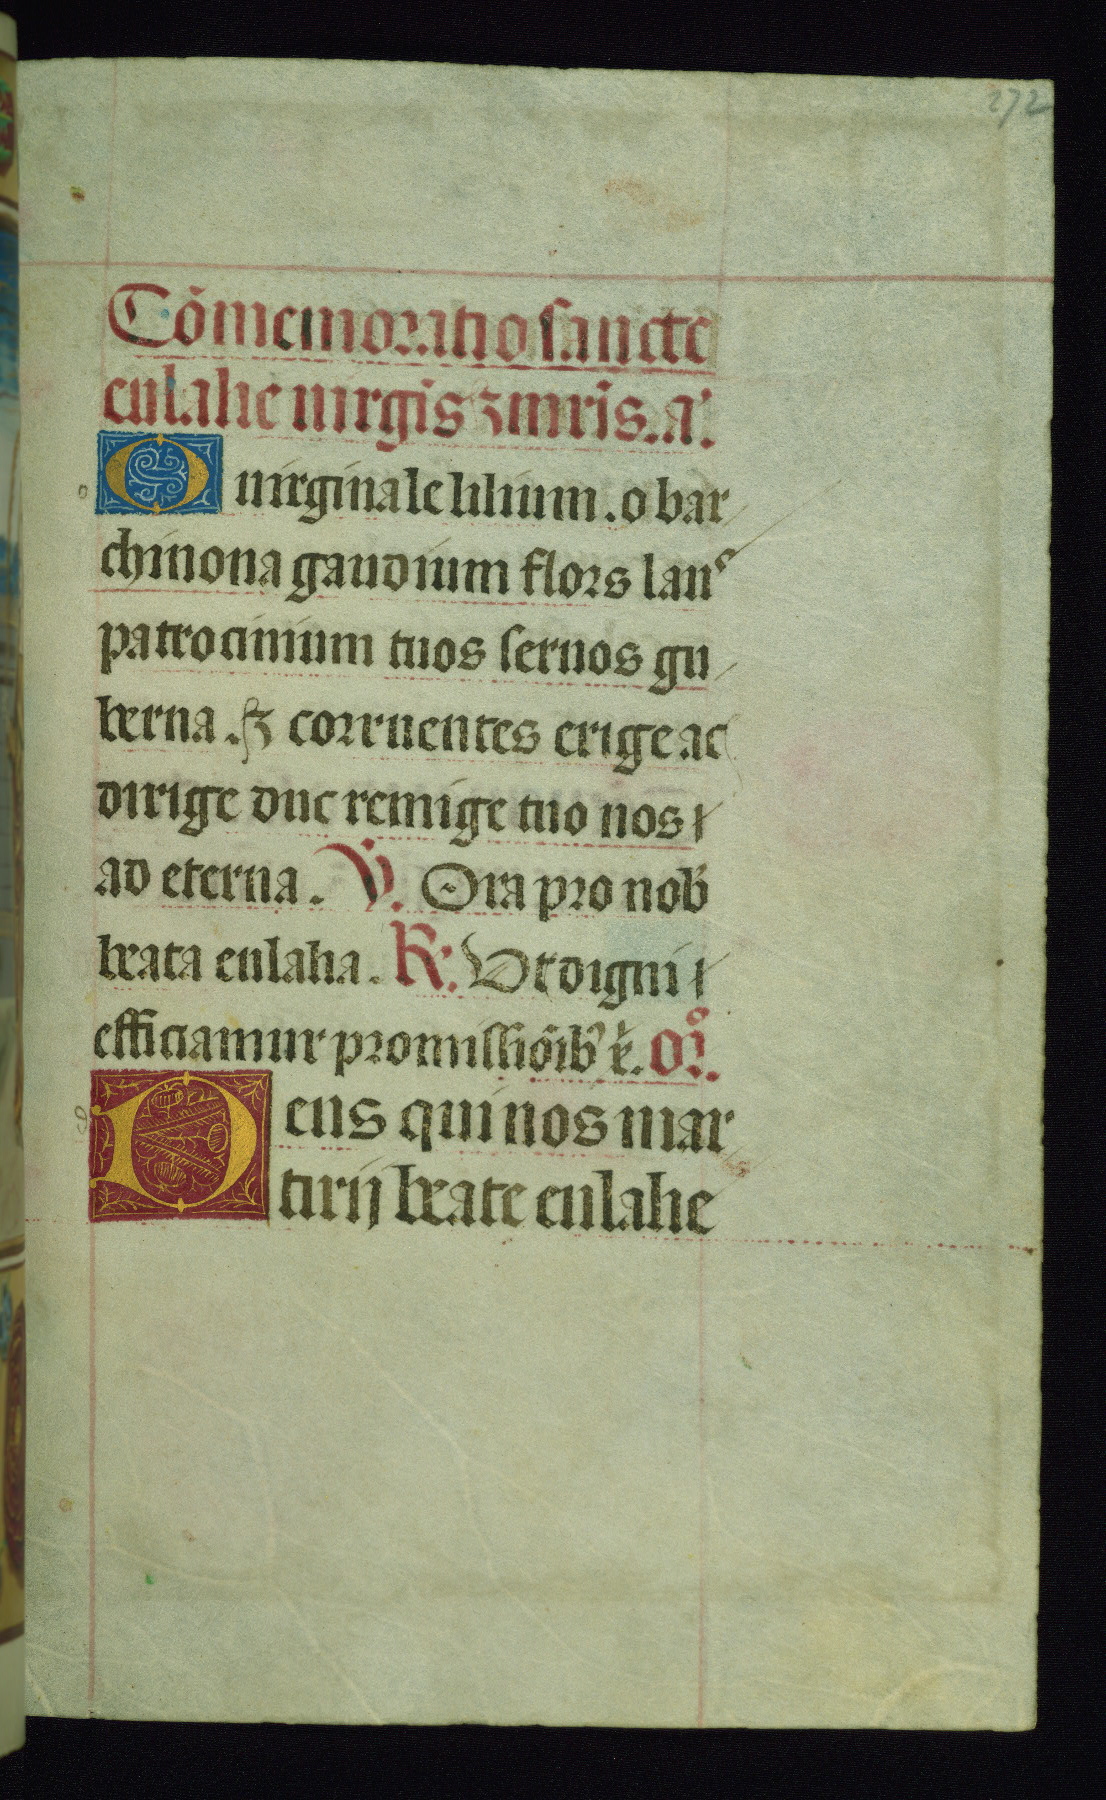 272
Cōmemoratio sancte
eulalie uirgīs ⁊ mrīs. a᷑.
O uirginale lilium. o bar
chinona gaudium flors lanꝰ
patrocinium tuos seruos gu
berna. sꝫ corruentes erige ac
dirige duc remige tuo nos
ad eterna. ℣. Ora pro nob̄
beata eulalia. ℟. Vt digni
efficiamur promissiōib᷒ x̄. Oꝛ̄o.
Deus qui nos mar
tirij beate eulalie